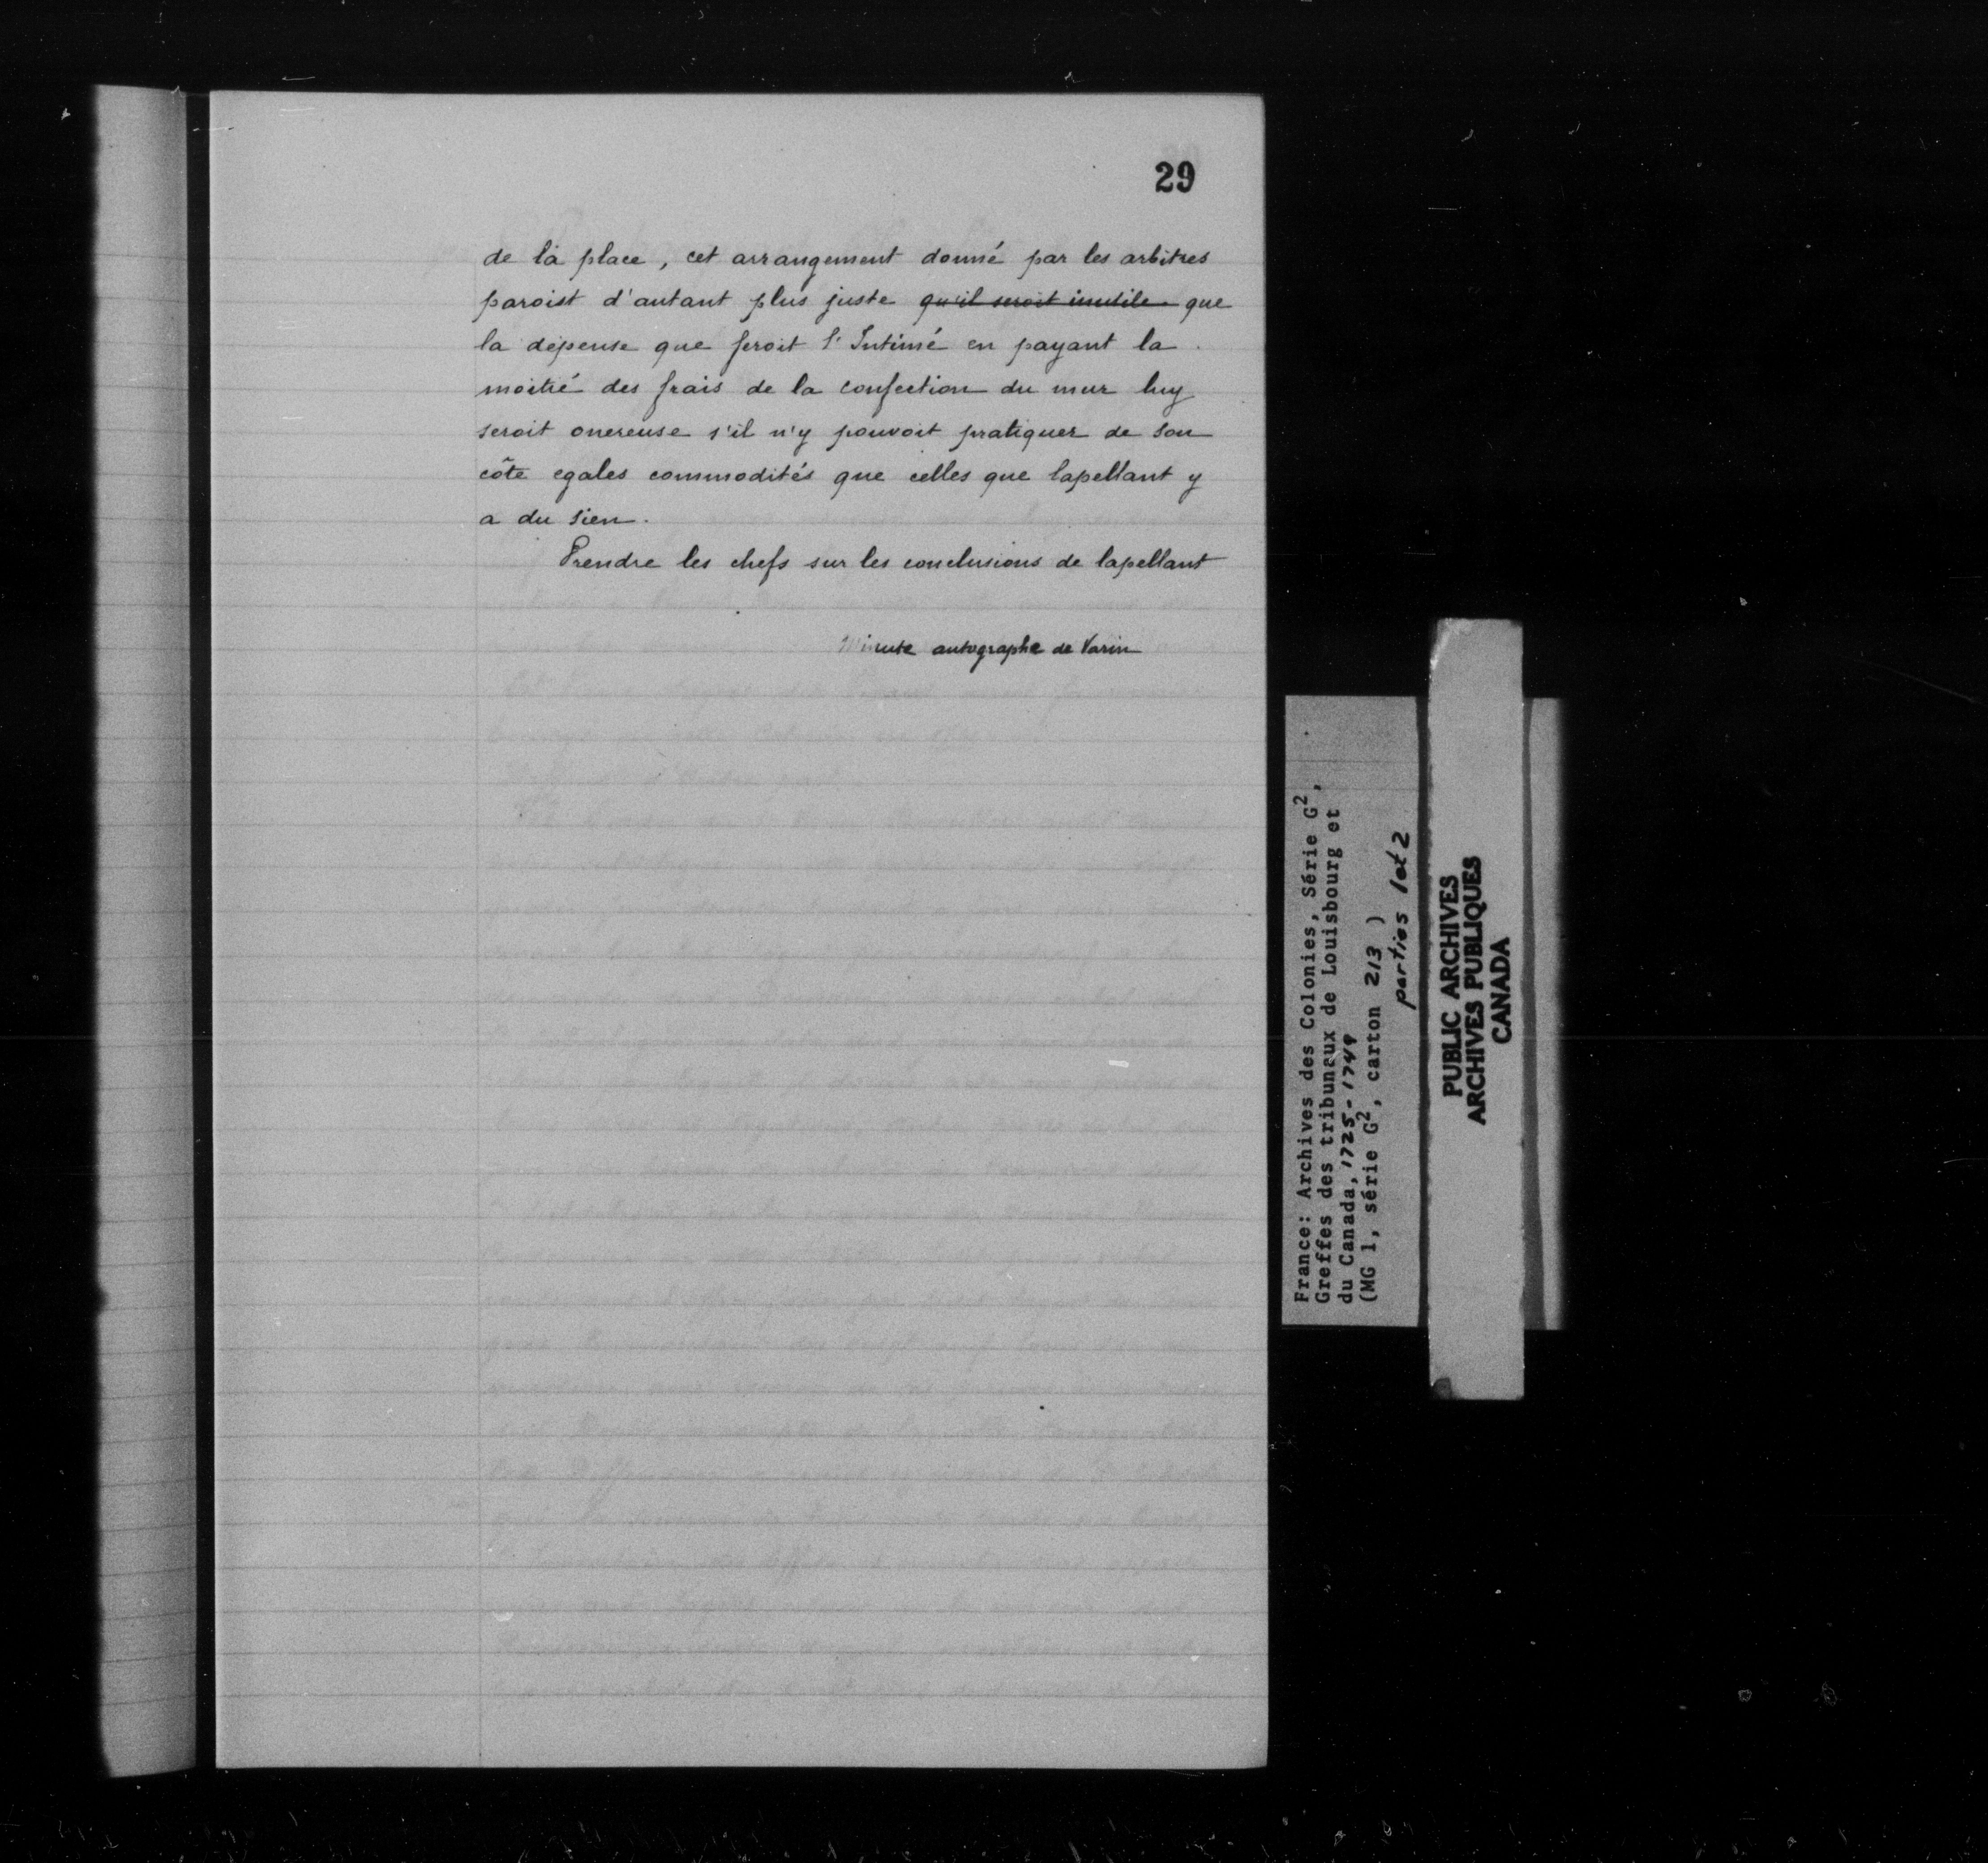 29
de la place, cet arrangement donné par les arbitres
paroist d'autant plus juste qu'il seroit inutile que
la dépense que feroit l'Intimé en payant la
moitié des frais de la confection du mur luy
seroit onereuse s'il n'y pouvoit pratiquer de son
côte egales commodités que celles que lapellant y
a du sien.
Prendre les chefs sur les conclusions de lapellant
Minute autographe de Varin
France: Archives des Colonies, Série G²,
Greffes des tribunaux de Louisbourg et
du Canada, 1725-1749
(MG 1, série G², carton 213 )
parties 1 et 2
PUBLIC ARCHIVES
ARCHIVES PUBLIQUES
CANADA